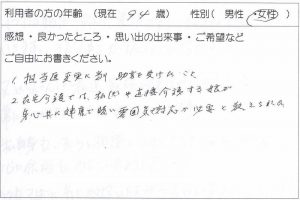 利用者の方の年齢 (現在 94 歳) 性別( 男性 ・女性 )
感想・良かったところ・思い出の出来事・ご希望など
ご自由にお書きください。
1 担当医変更に当り 助言を受けたこと
2. 在宅介護では、私(夫)や直接介護する娘が
身心共に健康で暖い雰囲気で対応が必要と教えられた